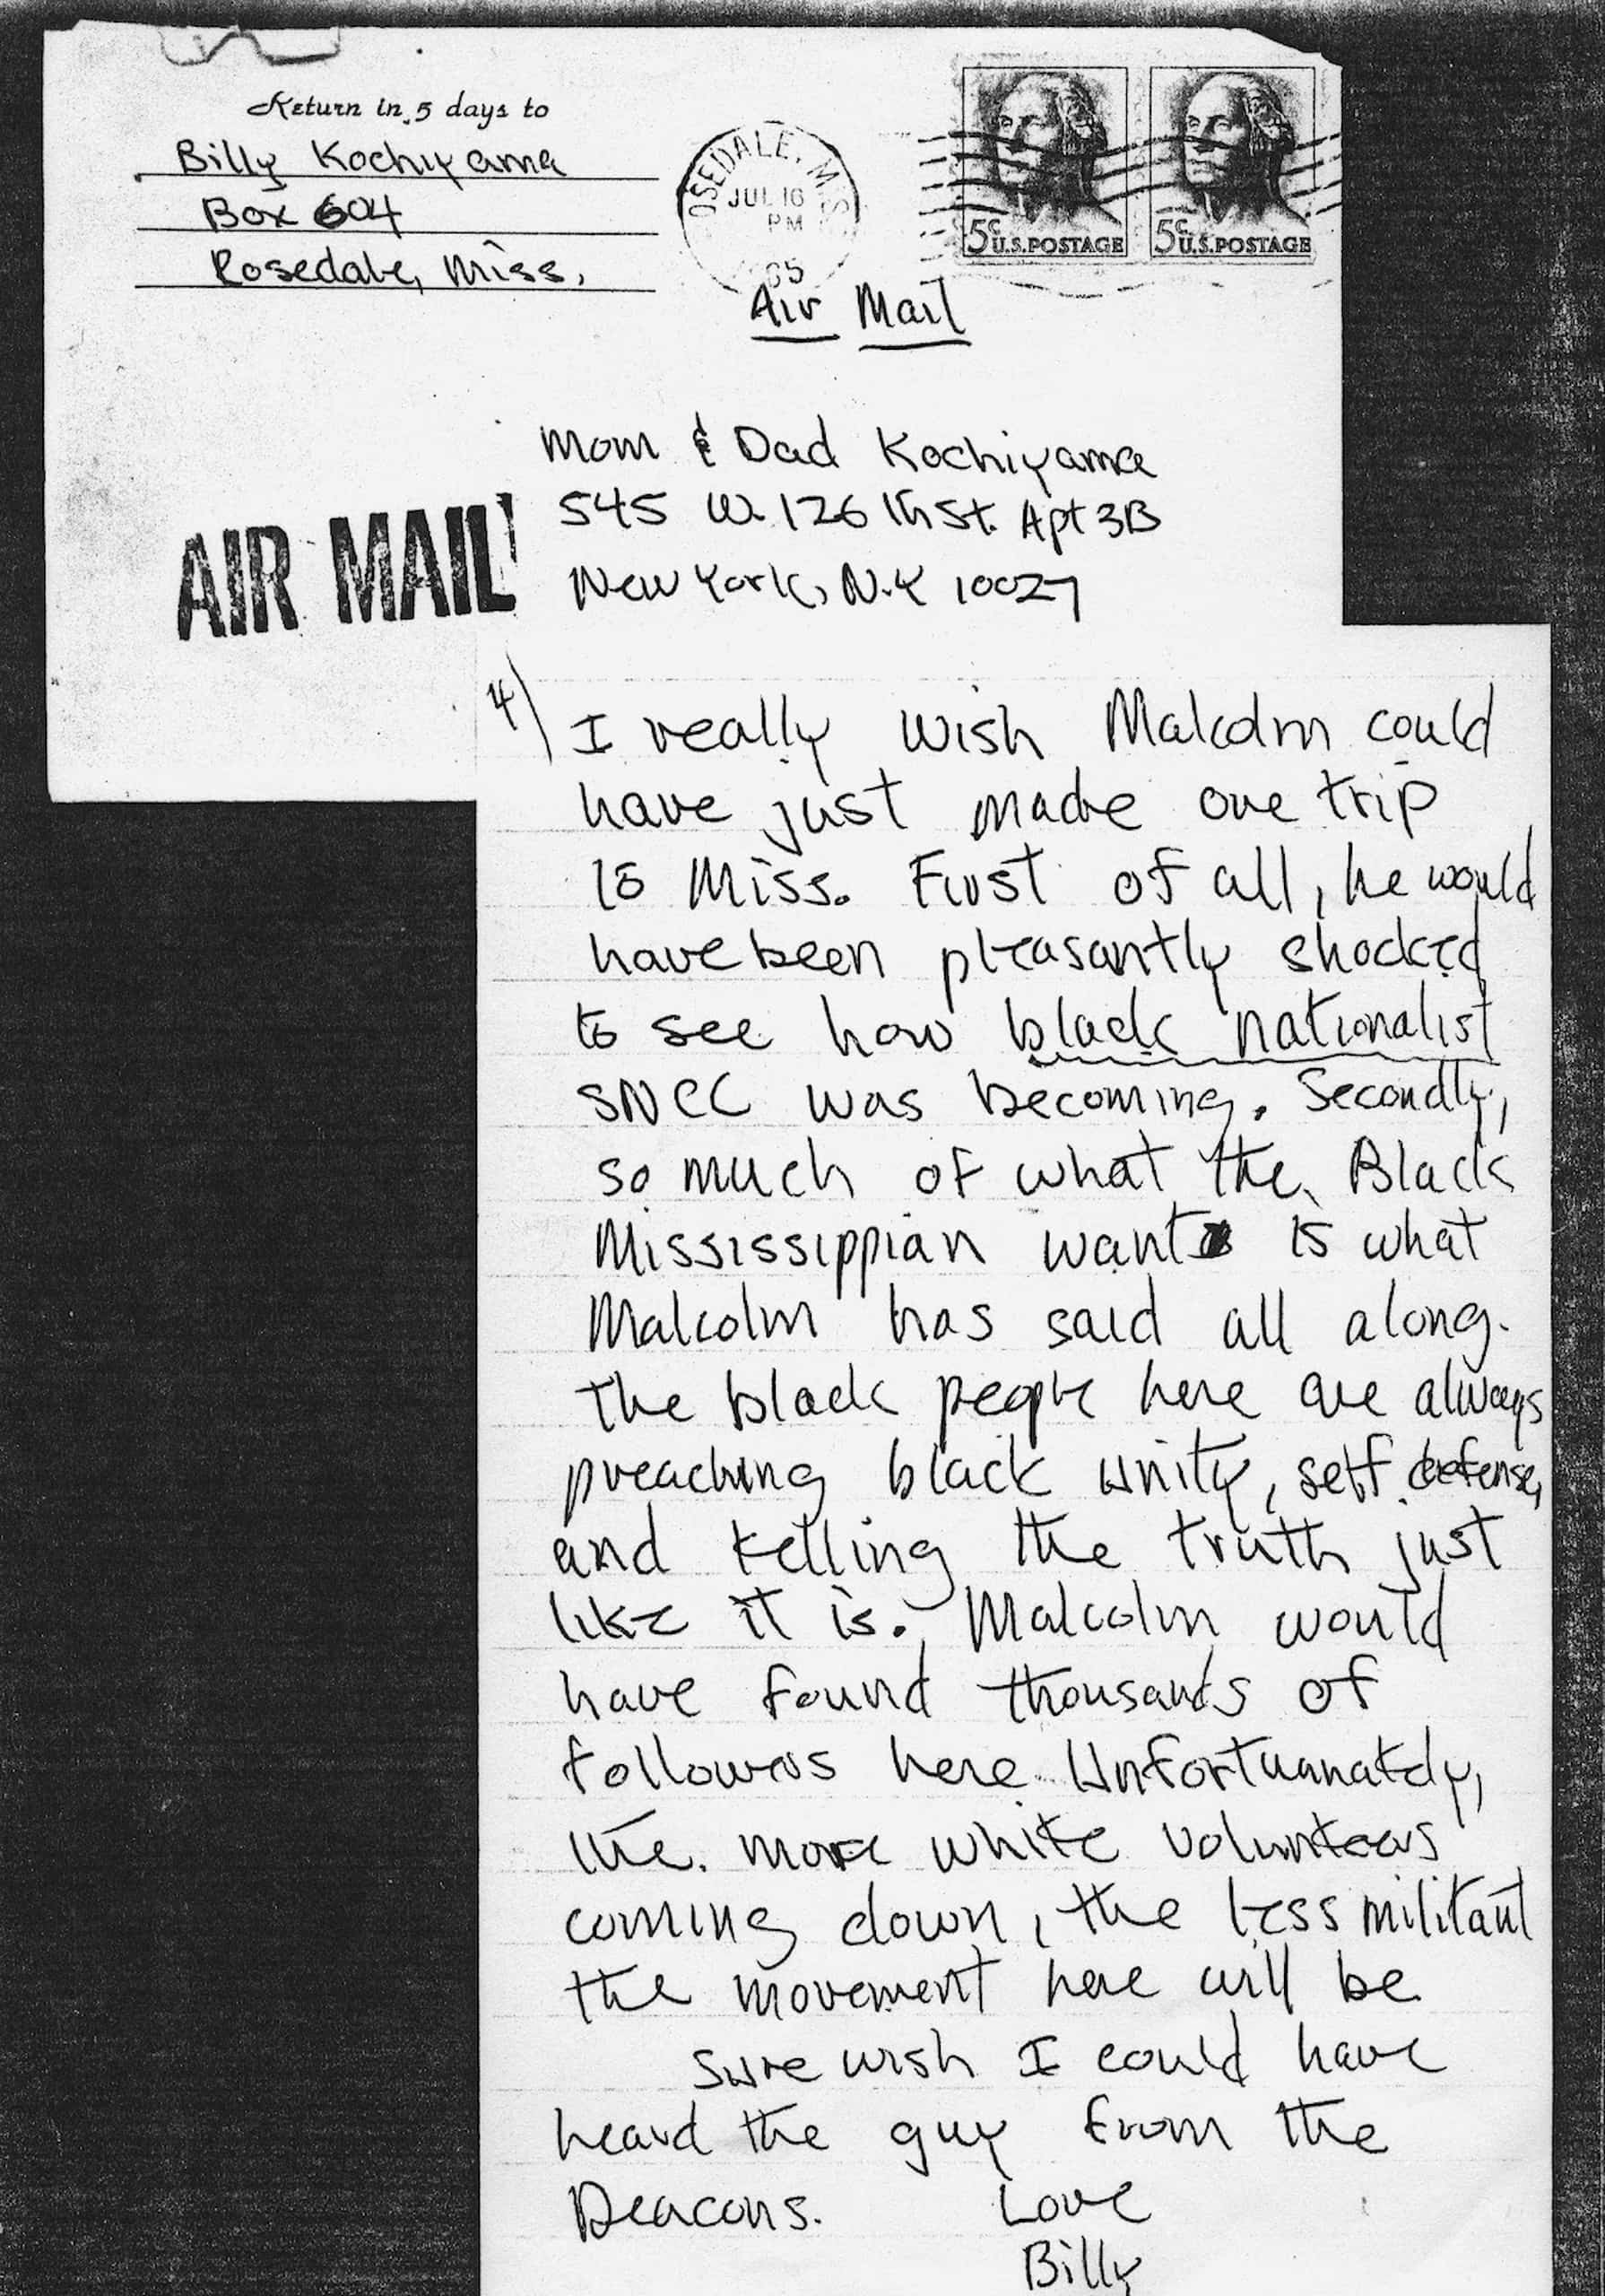 Return in 5 days to
Billy Kochiyama
Box 604
Rosedale, Miss.
ROSEDALE, MISS
JUL 16
PM
65
5¢ U.S. POSTAGE
5¢ U.S. POSTAGE
Air Mail
Mom & Dad Kochiyama
545 W. 126th St. Apt 3B
New York, N.Y 10027
AIR MAIL
4)
I really wish Malcolm could
have just made one trip
to Miss. First of all, he would
have been pleasantly shocked
to see how black nationalist
SNCC was becoming. Secondly,
so much of what the Black
Mississippian wants is what
Malcolm has said all along.
The black people here are always
preaching black unity, self defense,
and telling the truth just
like it is. Malcolm would
have found thousands of
followers here. Unfortuanately,
the more white volunteers
coming down, the less militant
the movement here will be
Sure wish I could have
heard the guy from the
Deacons. Love
Billy